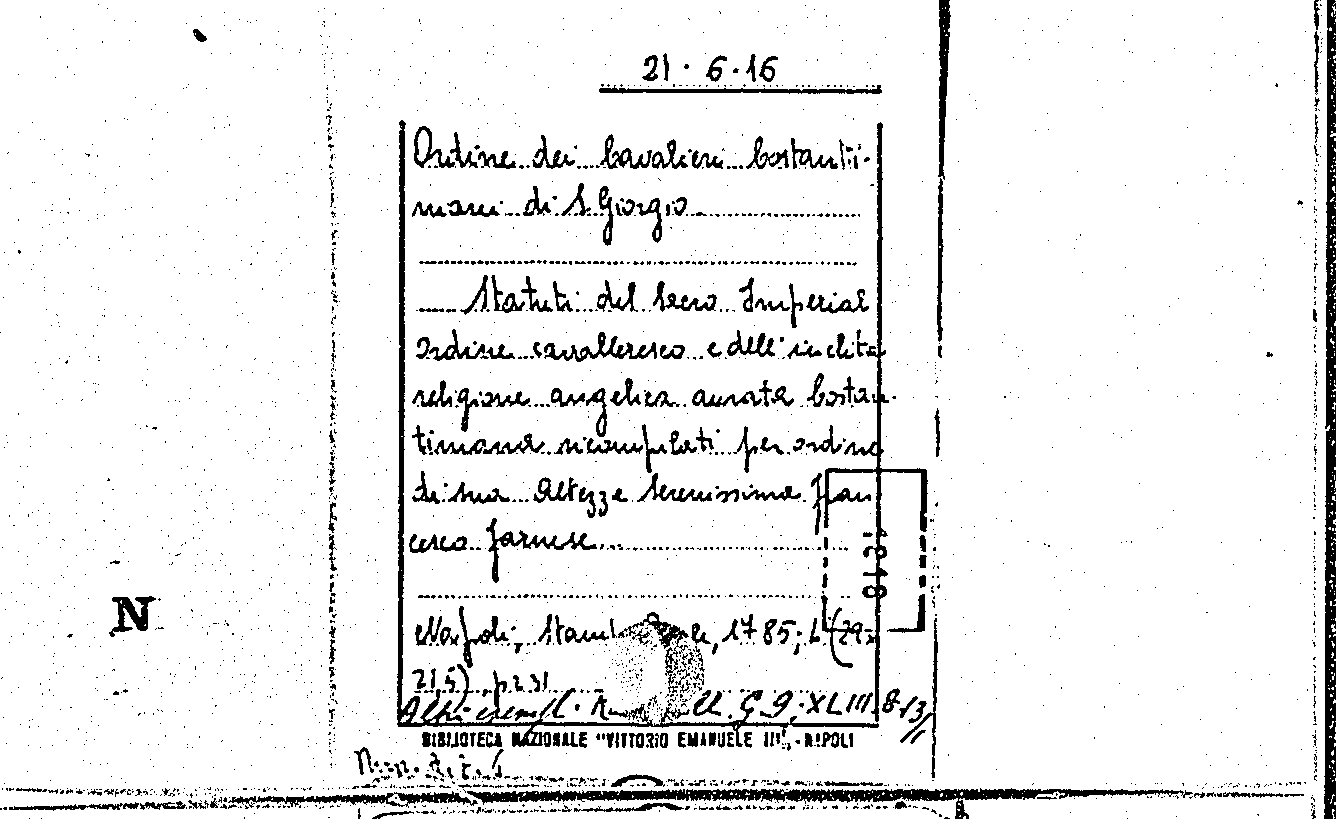 21 · 6 · 16
Ordine dei Cavalieri Costanti-
niani di S. Giorgio
Statuti del Sacro Imperial
ordine cavalleresco e dell'inclita
religione angelica aurata Costan-
tiniana ricompilati per ordine
di sua Altezza Serenissima Fran
cesco Farnese
1218
Napoli, 1785; (29x
21,5), p 231
Altri XLIII. 8-13
BIBLIOTECA NAZIONALE "VITTORIO EMANUELE III", - NAPOLI
N